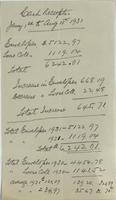 Cash Receipts
Jany 1st to Aug 15th 1931
Envelopes $5122.97
Loose Coll. 1119.04
Total 6242.01
Increase in Envelopes 668.19
Decrease " Loose Coll. 22.48
Total Increase 645.71
Total Envelopes 1931 - 5122.97
" Loose Coll. 1931 - 1119.04
Total $6242.01
Total Envelopes 1930 - 4454.78
" Loose Coll. 1930 - 1141.52